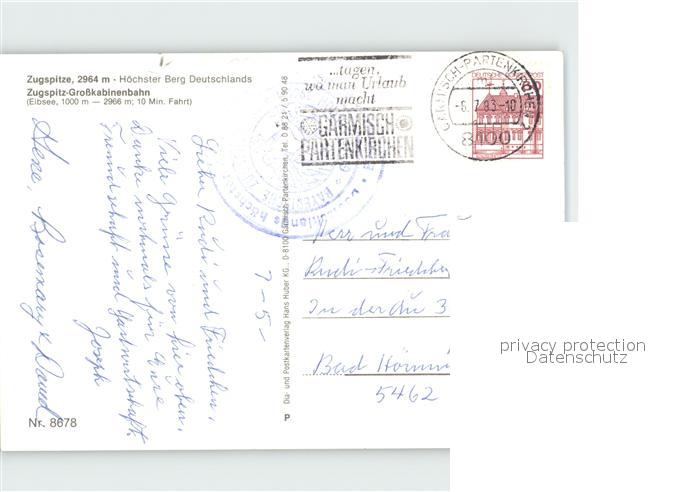 Zugspitze, 2964 m - Höchster Berg Deutschlands
Zugspitz-Großkabinenbahn
(Eibsee, 1000 m — 2966 m; 10 Min. Fahrt)
...tagen,
wo man Urlaub
macht
GARMISCH
PARTENKIRCHEN
GARMISCH-PARTENKIRCHEN
-6.7.83-10
8100
DEUTSCHE BUNDESPOST
Liebe Rudi und Friedchen,
Viele Grüsse von hier oben,
Danke nochmals für Eure
Freundschaft und Gastwirtschaft.
Joseph
Rosemary & David
7-5-
Dia- und Postkartenverlag Hans Huber KG., D-8100 Garmisch-Partenkirchen, Tel. 0 88 21 / 5 90 48
Herr und Frau
Rudi-Friedche
In der du 3
Bad Hönni
5462
P
Nr. 8678
privacy protection
Datenschutz